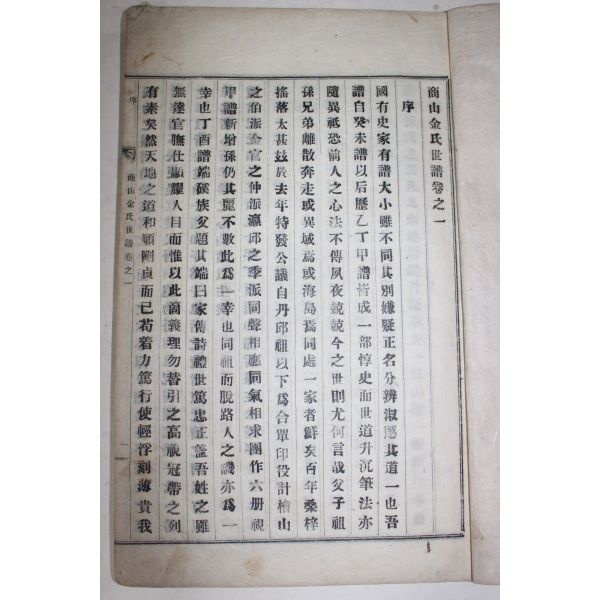 商山金氏世譜卷之一
序
國有史家有譜大小雖不同其別嫌疑正名分辨淑慝其道一也吾
譜自癸未譜以后歷乙丁甲譜皆成一部惇史而世道升沉筆法亦
隨異祗恐前人之心法不傳夙夜兢兢今之世則尤何言哉父子祖
孫兄弟離散奔走或異域焉或海島焉同處一家者鮮矣百年桑梓
搖落太甚玆於去年特發公議自丹邱祖以下爲合單印役計檜山
之伯派金官之仲派瀛邱之季派同聲相應同氣相求團作六册視
甲譜新增孫仍其麗不數此爲一幸也同祖而脫路人之譏亦爲一
幸也丁酉譜端磎族父題其端曰家傳詩禮世篤忠正盖吾姓之雖
無達官膴仕顯耀人目而惟以此箇義理勿替引之高視冠帶之列
有素矣然天地之道和順剛貞而已苟着力篤行使輕浮刻薄貴我
序
商山金氏世譜卷之一
一